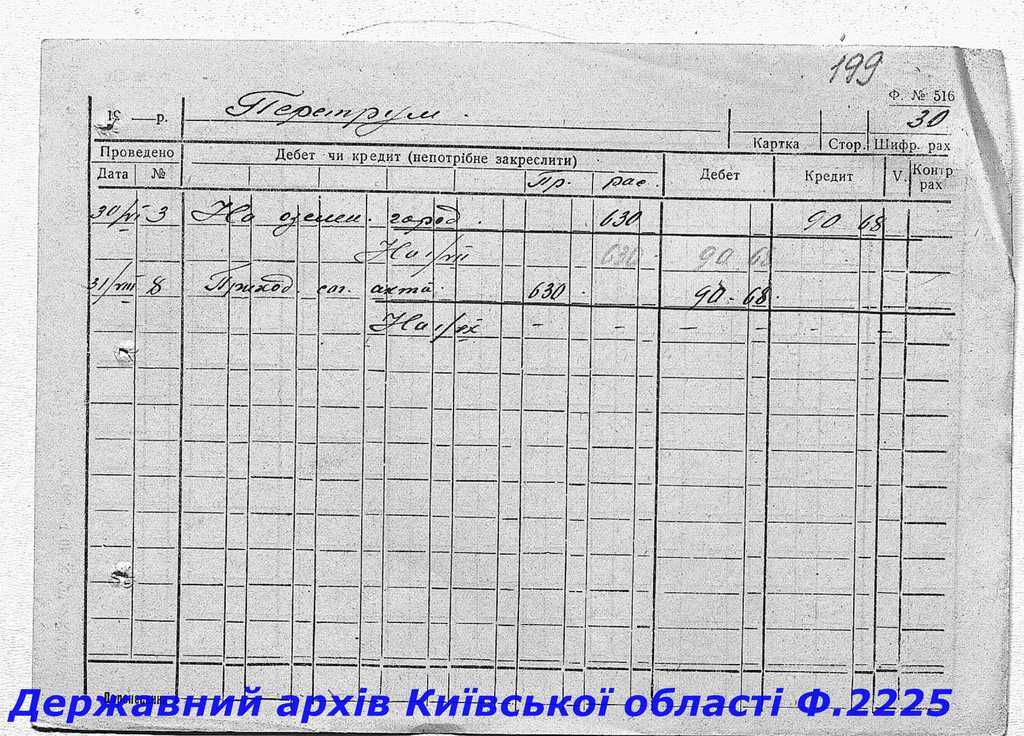 199
Ф. № 516
19 — р. Петрум. 30
Картка Стор. Шифр. рах
Проведено Дебет чи кредит (непотрібне закреслити) Дебет Кредит V. Контр рах
Дата № Пр. рас.
30/VI 3 На озелен. город. 630 90 68
На 1/VII 630 90 68
31/VIII 8 Приход. сог. акта. 630 90-68.
На 1/IX - - - - -
Державний архів Київської області Ф.2225